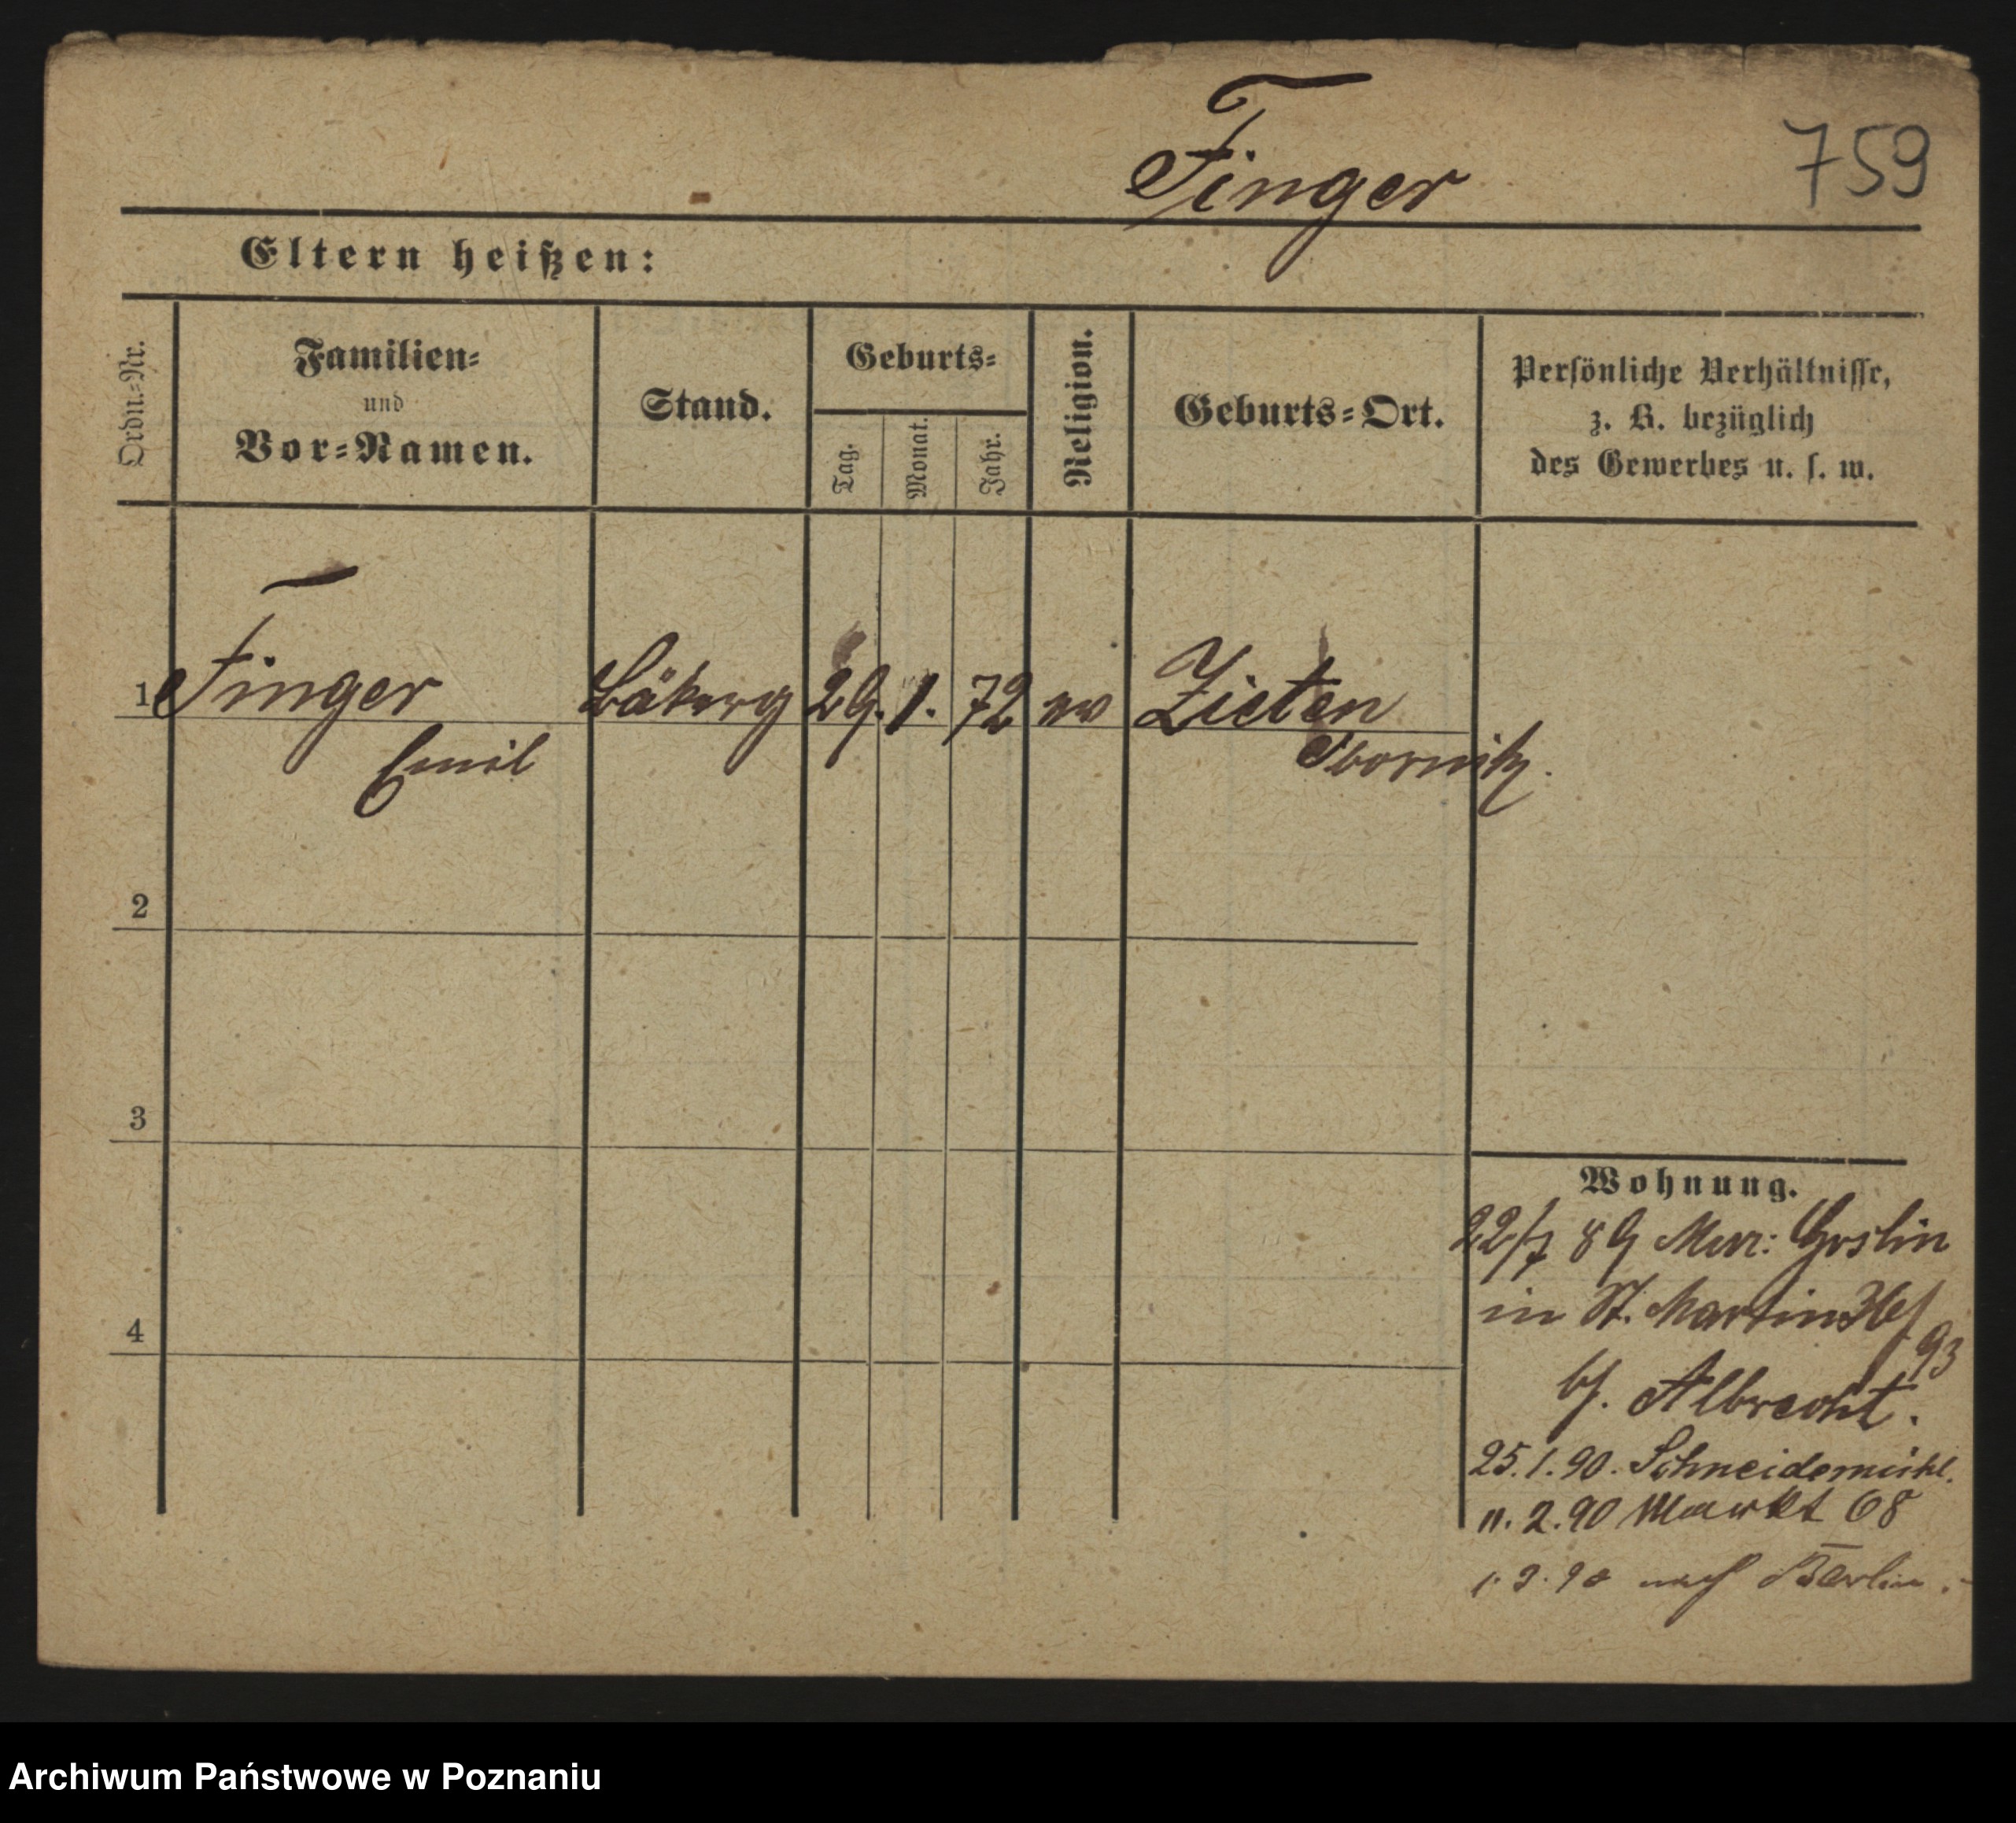 Finger
759
Eltern heißen:
Ordn.-Nr.
Familien-
und
Vor-Namen.
Stand.
Geburts-
Tag.
Monat.
Jahr.
Religion.
Geburts-Ort.
Persönliche Verhältnisse,
z. B. bezüglich
des Gewerbes u. s. w.
1 Finger 29. 1. 72 ev Zieten
Emil Obornik.
2
3
4
Wohnung.
22/7 89 Mur: Goslin
in St. Martin
93
b/. Albrecht.
25.1.90. Schneidemühl.
11.2.90 Markt 68
1.3.90 nach Berlin.
Archiwum Państwowe w Poznaniu